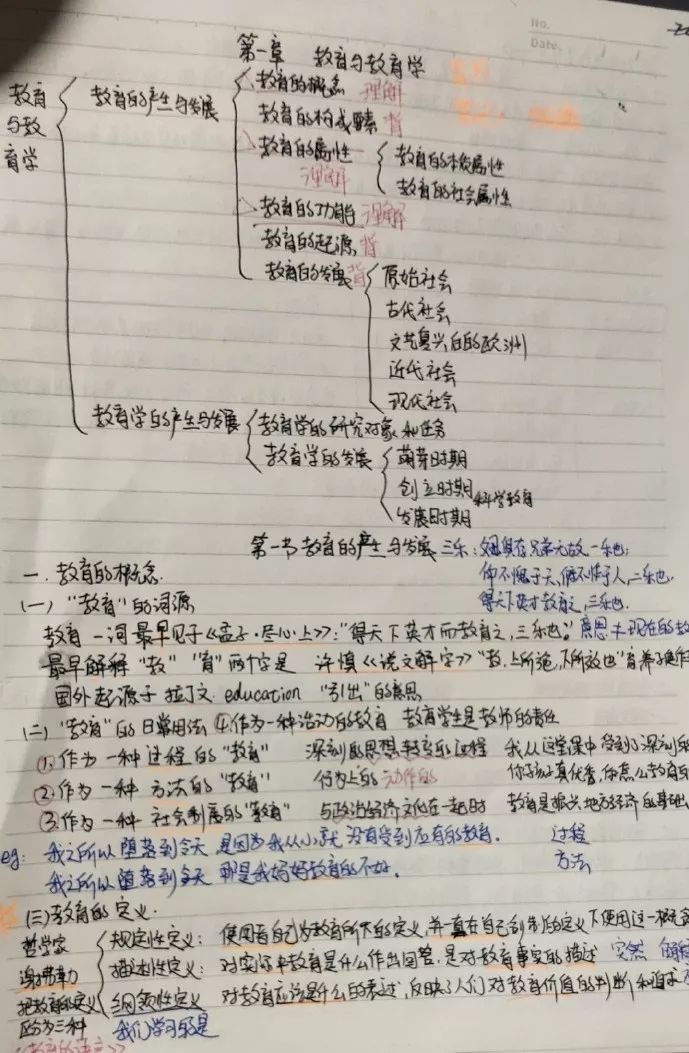 No.
Date.
第一章 教育与教育学
教育与教育学
教育的产生与发展
教育的概念 理解
教育的构成要素 背
教育的属性 理解
教育的本质属性
教育的社会属性
教育的功能 理解
教育的起源 背
教育的发展 背
原始社会
古代社会
文艺复兴后的欧洲
近代社会
现代社会
教育学的产生与发展
教育学的研究对象和任务
教育学的发展
萌芽时期
创立时期 科学教育
发展时期
第一节 教育的产生与发展 三乐:父母俱存兄弟无故,一乐也;
一、教育的概念. 仰不愧于天,俯不怍于人,二乐也.
(一)"教育"的词源 得天下英才教育之,三乐也.
教育一词最早见于《孟子·尽心上》:"得天下英才而教育之,三乐也。"意思大现在的教
最早解释"教""育"两个字是 许慎《说文解字》"教,上所施,下所效也""育养子使作
国外起源于拉丁文 education "引出"的意思
(二)"教育"的日常用法 ④作为一种活动的教育 教育学生是教师的责任
①作为一种过程的"教育" 深刻的思想转变的过程 我从这堂课中受到了深刻的
②作为一种方法的"教育" 行为上的 动作的 你孩子真优秀,你怎么教育的
③作为一种社会制度的"教育" 与政治经济文化在一起时 教育是振兴地方经济的基础
eg: 我之所以堕落到今天 是因为我从小就没有受到应有的教育. 过程
我之所以堕落到今天 那是我妈妈教育的不好. 方法
(三)教育的定义.
哲学家
谢弗勒
把教育的定义
区分为三种
《教育的语言》
规定性定义: 使用者自己为教育所下的定义,并一直在自己创制的定义下使用这一概念
描述性定义: 对实际中教育是什么作出回答.是对教育事实的描述 实然
纲领性定义 对教育应该是什么的表述,反映了人们对教育价值的判断和追求
我们学习的是